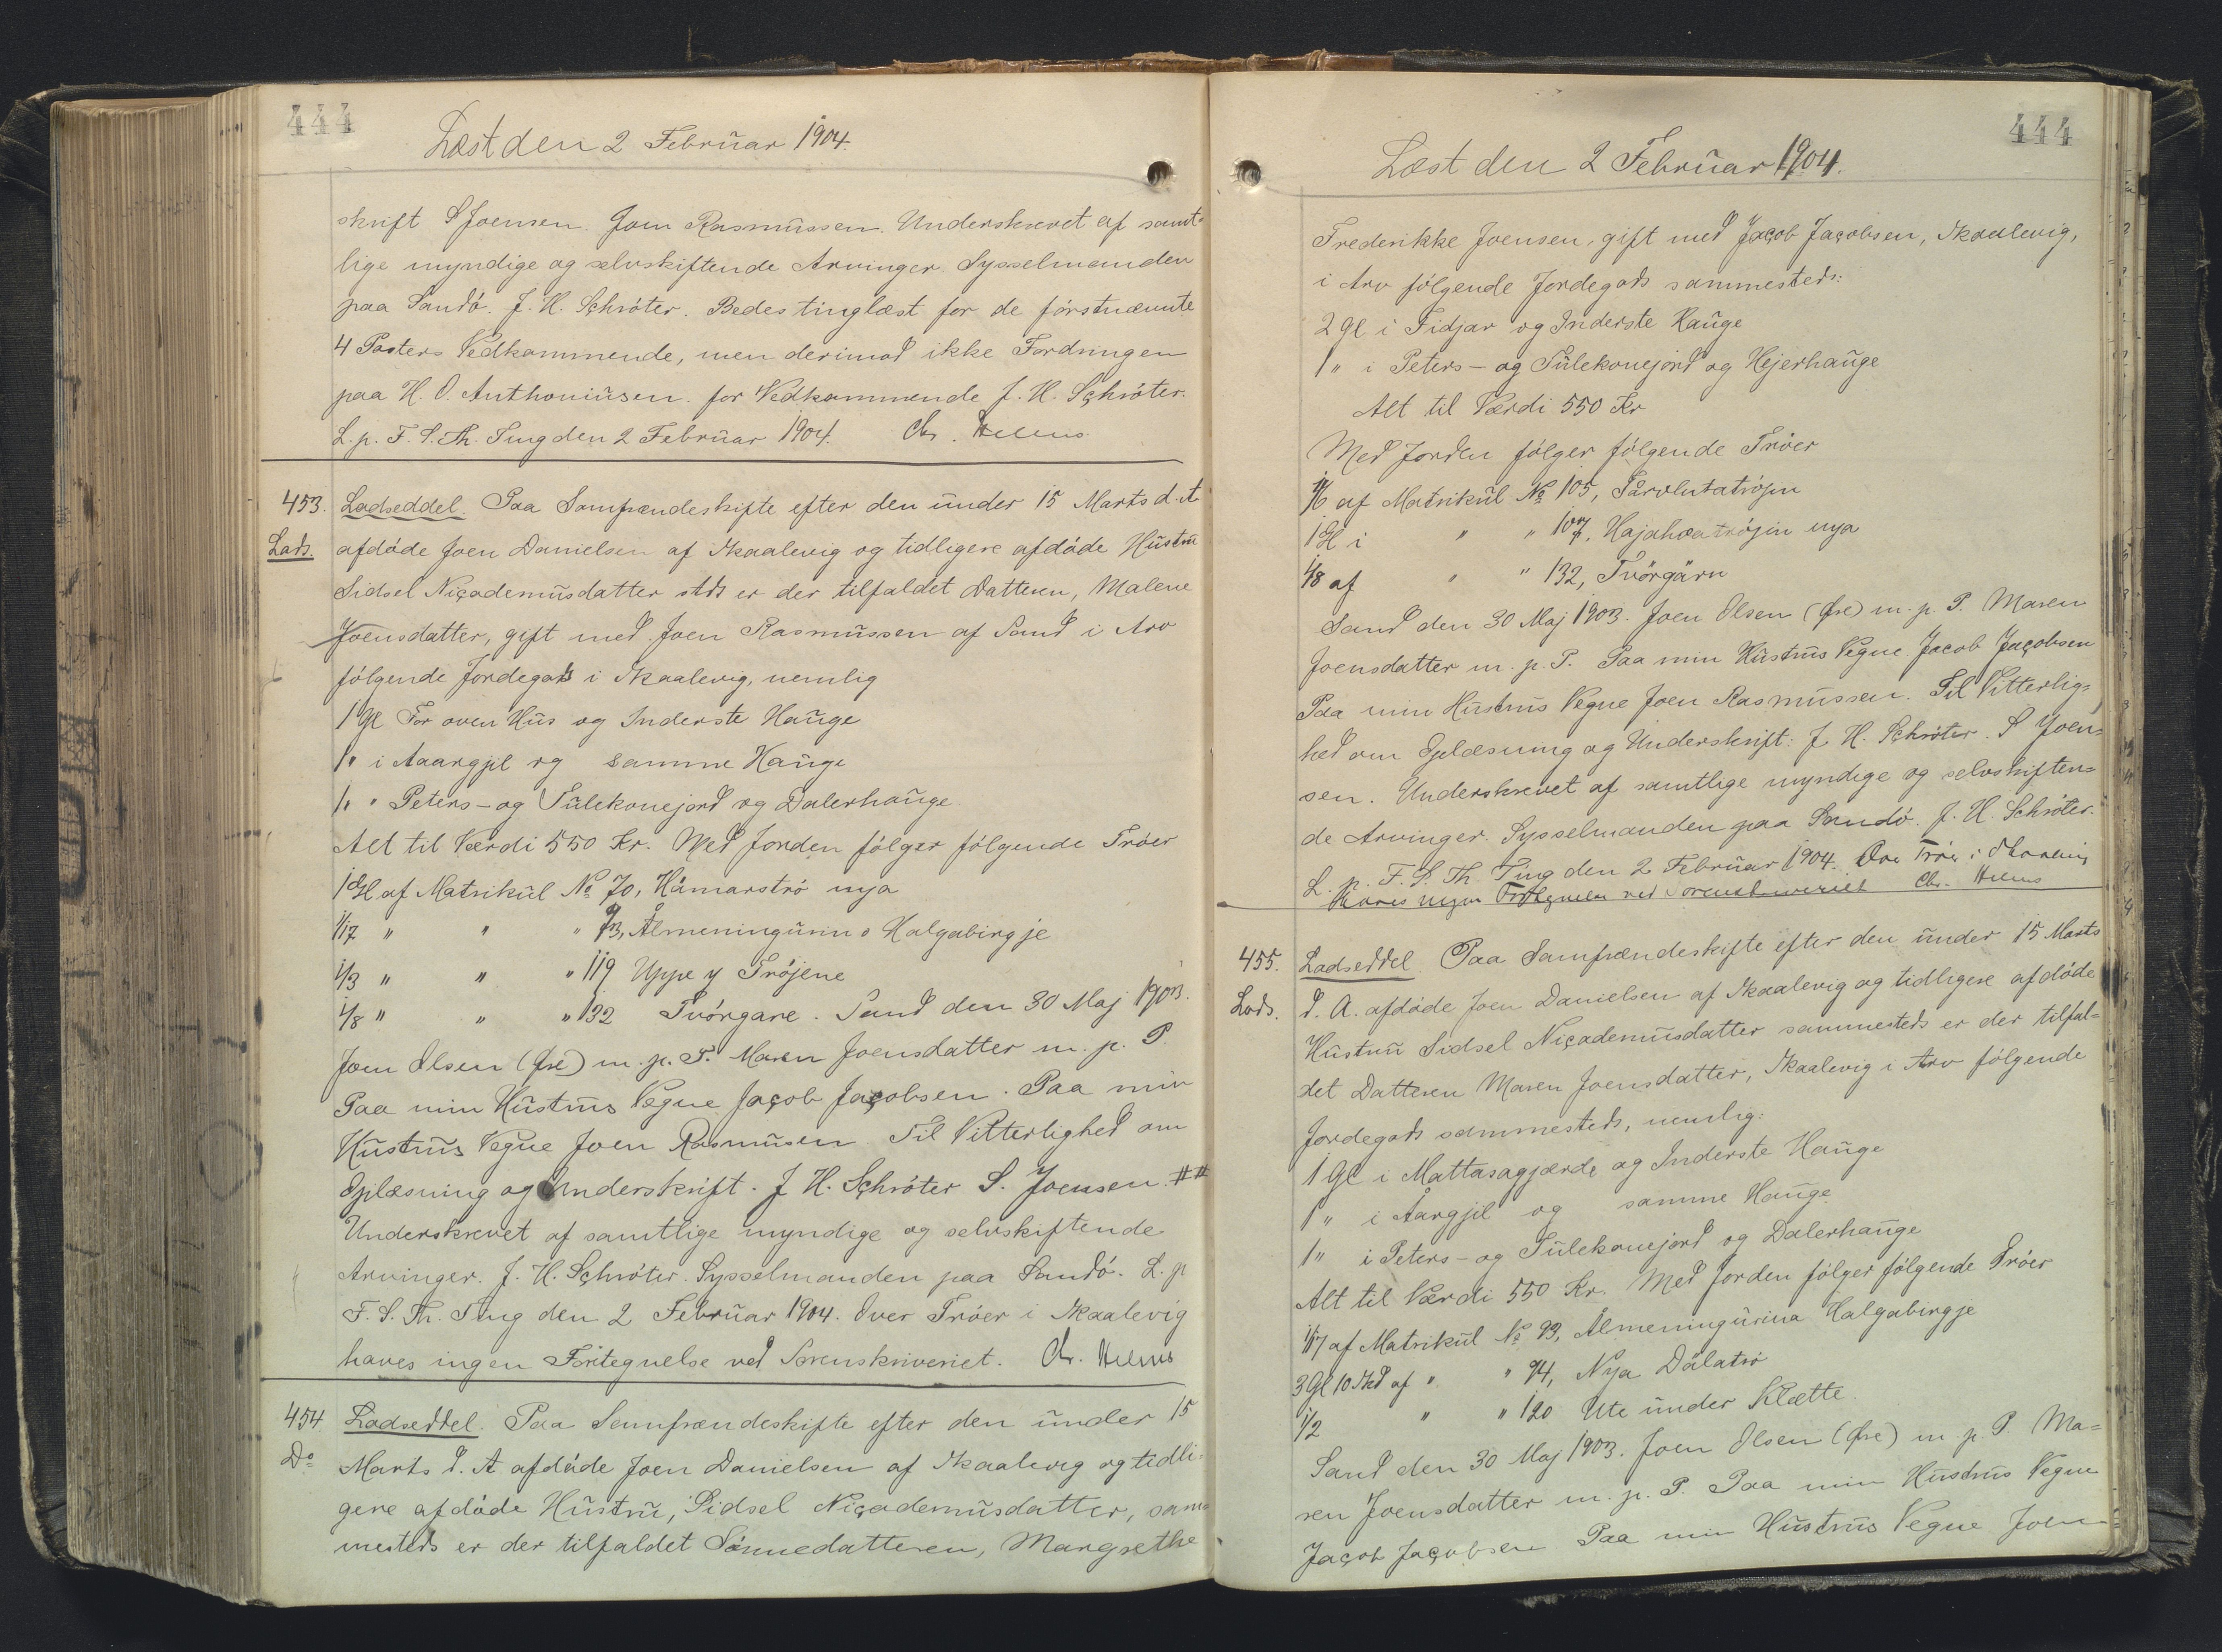 444
Læst den 2 Februar 1904.
skrift S Joensen. Joen Rasmussen. Underskrevet af samt-
lige myndige og selvskiftende Arvinger. Sysselmanden
paa Sandö. J. H. Schröter. Bedes tinglæst for de förstnævnte
4 Posters Vedkommende, men derimod ikke Fordringen
paa H. O. Anthoniusen. for Vedkommende J. H. Schröter.
L. p. F. S. Th. Ting den 2 Februar 1904. Chr. Helms
453. Ladseddel. Paa Samfrændeskifte efter den under 15 Marts d. A
Lads. afdöde Joen Danielsen af Skaalevig og tidligere afdöde Hustru
Sidsel Niçodemusdatter stds er der tilfaldet Datteren, Malene
Joensdatter, gift med Joen Rasmussen af Sand i Arv
fölgende Jordegods i Skaalevig, nemlig
1 Gl For oven Hus og Inderste Hauge
1 " i Aaargjil og samme Hauge
1 " " Peters- og Sülekonejord og Dalerhauge
Alt til Værdi 550 Kr. Med Jorden fölger fölgende Tröer
1 Gl af Matrikul No 70, Hámarströ nya
1/17 " " " 93, Álmeningurin o Halgabirgje
1/3 " " " 119 Uppe y Tröjene
1/8 " " " 132 Tvörgare. Sand den 30 Maj 1903.
Joen Olsen (Öre) m. p. P. Maren Joensdatter m. p. P.
Paa min Hustrus Vegne Jaçob Jaçobsen. Paa min
Hustrus Vegne Joen Rasmusen Til Vitterlighed om
Oplæsning og Underskrift. J H. Schröter S. Joensen. ##
Underskrevet af samtlige myndige og selvskiftende
Arvinger. J. H. Schröter. Sysselmanden paa Sandö. L. p
F. S. Th. Ting den 2 Februar 1904. Over Tröer i Skaalevig
haves ingen Fortegnelse ved Sorenskriveriet. Chr. Helms
454 Ladseddel. Paa Samfrændeskifte efter den under 15
Do Marts d. A afdöde Joen Danielsen af Skaalevig og tidli-
gere afdöde Hustru, Sidsel Niçodemusdatter, sam-
mesteds er der tilfaldet Sönnedatteren, Margrethe
444
Læst den 2 Februar 1904.
Frederikke Joensen, gift med Jaçob Jaçobsen, Skaalevig,
i Arv fölgende Jordegods sammesteds:
2 Gl i Fidjar og Inderste Hauge
1 " i Peters- og Sülekonejord og Hejerhauge
Alt til Værdi 550 Kr
Med Jorden fölger fölgende Tröer
1/6 af Matrikul No 105, Tårvlutatröjin
1 Gl i " " 107, Hajahoatröjin nya
1/8 af " " 132, Tvörgárn
Sand den 30 Maj 1903. Joen Olsen (Öre) m. p. P. Maren
Joensdatter m. p. P. Paa min Hustrus Vegne Jacob Jaçobsen
Paa min Hustrus Vegne Joen Rasmussen. Til Vitterlig=
hed om Oplæsning og Underskrift: J H. Schröter. S Joen=
sen. Underskrevet af samtlige myndige og selvskiften=
de Arvinger. Sysselmanden paa Sandö. J. H. Schröter.
L. p. F. S. Th. Ting den 2 Februar 1904. Over Tröer i Skaalevig
haves ingen Fortegnelse ved Sorenskriveriet Chr. Helms
455. Ladseddel. Paa Samfrændeskifte efter den under 15 Marts
Lads. d. A. afdöde Joen Danielsen af Skaalevig og tidligere afdöde
Hustru Sidsel Niçodemusdatter sammesteds er der tilfal=
det Datteren Maren Joensdatter, Skaalevig i Arv fölgende
Jordegods sammesteds, nemlig:
1 Gl i Mattasagjærde og Inderste Hauge
1 " i Aargjil og samme Hauge
1 " i Peters- og Sülekonejord og Dalerhauge
Alt til Værdi 550 Kr. Med Jorden fölger fölgende Tröer
1/17 af Matrikul No 93, Álmeningurina Halgabirgje
3 Gl 10 Skd af " " 94, Nya Dálatrö
1/2 " " 120 Ute under Klætte.
Sand den 30 Maj 1903. Joen Olsen (Öre) m. p. P. Ma=
ren Joensdatter m. p. P. Paa min Hustrus Vegne
Jaçob Jaçobsen Paa min Hustrus Vegne Joen